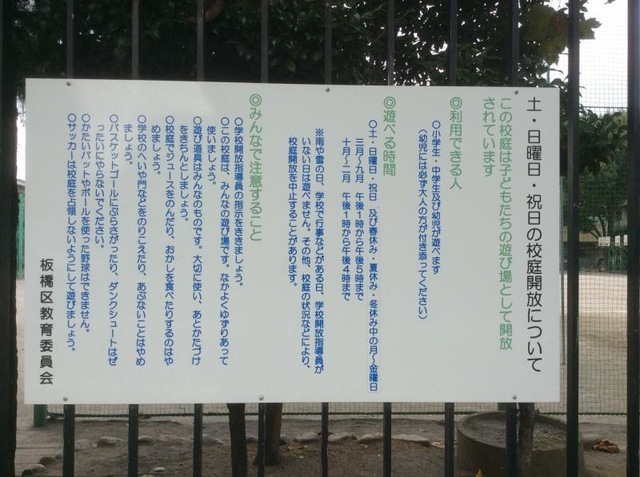 土・日曜日・祝日の校庭開放について
この校庭は子どもたちの遊び場として開放
されています
◎利用できる人
○小学生・中学生及び幼児が遊べます
（幼児には必ず大人の方が付き添ってください）
◎遊べる時間
○土・日曜日・祝日　及び春休み・夏休み・冬休み中の月～金曜日
三月～九月　午後１時から午後５時まで
十月～二月　午後１時から午後４時まで
※雨や雪の日、学校で行事などがある日、学校開放指導員が
いない日は遊べません。その他、校庭の状況などにより、
校庭開放を中止することがあります。
◎みんなで注意すること
○学校開放指導員の指示をききましょう。
○この校庭は、みんなの遊び場です。なかよくゆずりあって
使いましょう。
○遊び道具はみんなのものです。大切に使い、あとかたづけ
をきちんとしましょう。
○校庭でジュースをのんだり、おかしを食べたりするのはや
めましょう。
○学校のへいや門などをのりこえたり、あぶないことはやめ
ましょう。
○バスケットゴールにぶらさがったり、ダンクシュートはぜ
ったいにやらないでください。
○かたいバットやボールを使った野球はできません。
○サッカーは校庭を占領しないようにして遊びましょう。
板橋区教育委員会